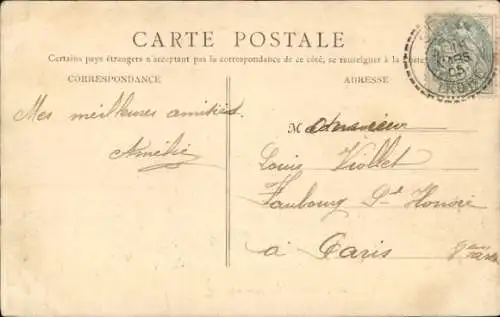 CARTE POSTALE
Certains pays étrangers n'acceptant pas la correspondance de ce côté, se renseigner à la Poste
CORRESPONDANCE
ADRESSE
Mes meilleures amitiés.
Amélie
Monsieur
Louis Viollet
Faubourg St Honoré
à Paris
MARS
05
INDRE